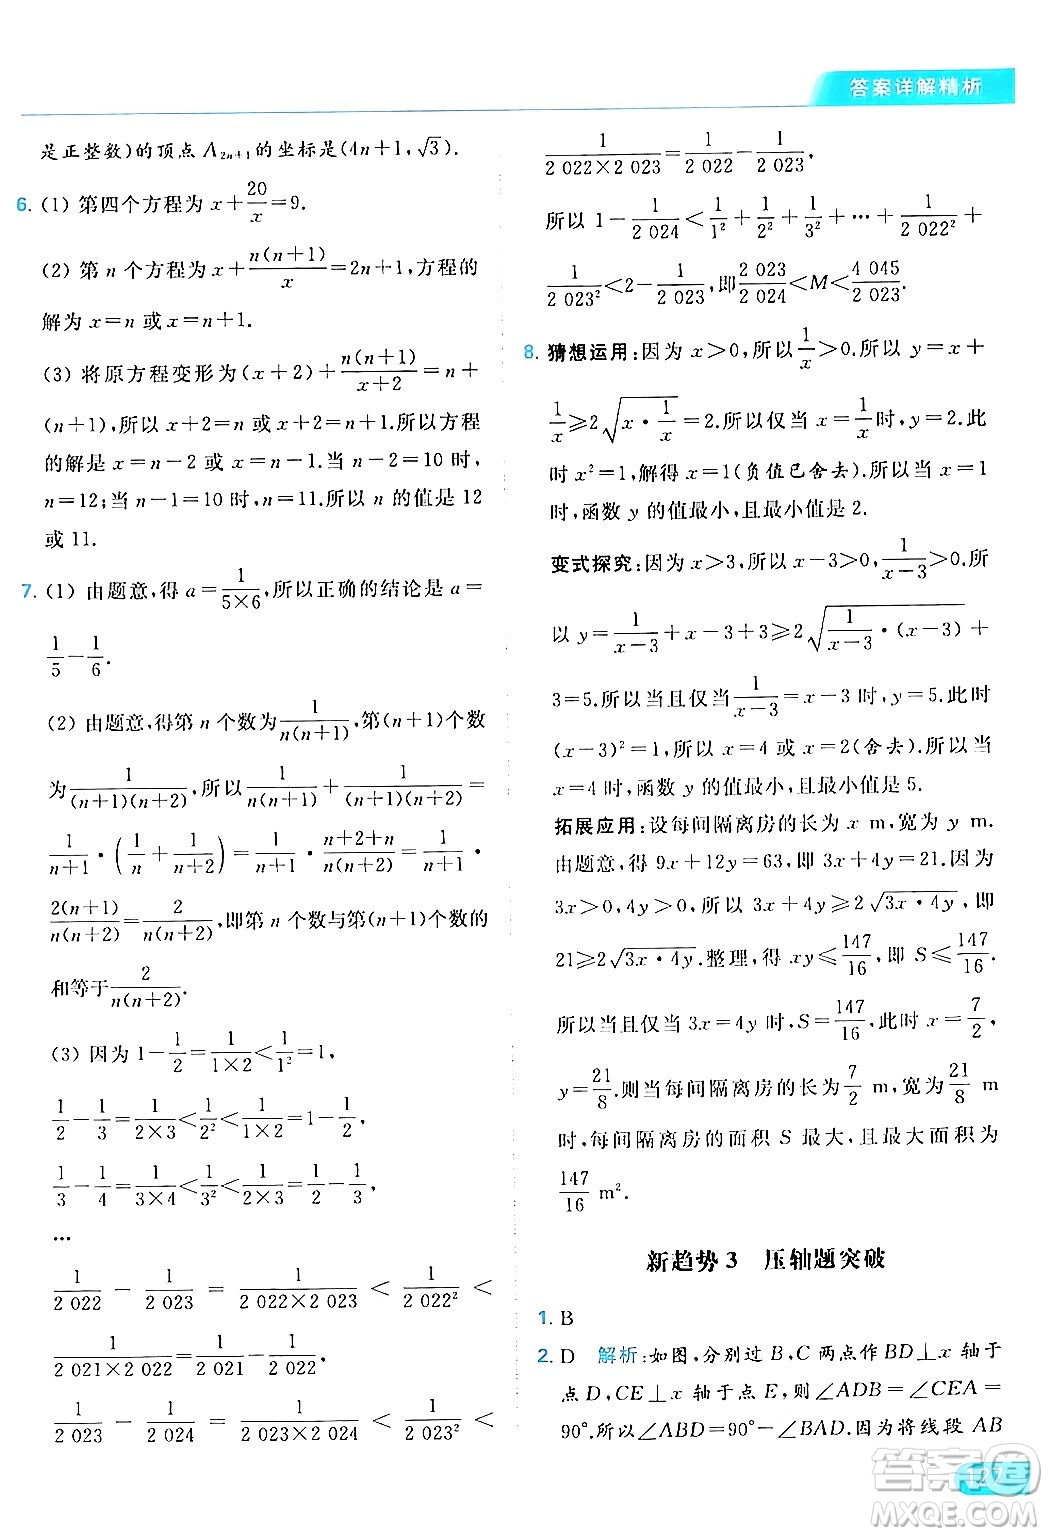 答案详解精析
是正整数)的顶点 A₂ₙ₊₁ 的坐标是(4n+1,√3).
6. (1) 第四个方程为 x+20/x=9.
(2) 第 n 个方程为 x+n(n+1)/x=2n+1,方程的
解为 x=n 或 x=n+1.
(3) 将原方程变形为(x+2)+n(n+1)/(x+2)=n+
(n+1),所以 x+2=n 或 x+2=n+1.所以方程
的解是 x=n-2 或 x=n-1.当 n-2=10 时,
n=12;当 n-1=10 时,n=11.所以 n 的值是 12
或 11.
7. (1) 由题意,得 a=1/(5×6),所以正确的结论是 a=
1/5-1/6.
(2) 由题意,得第 n 个数为1/(n(n+1)),第(n+1)个数
为1/((n+1)(n+2)),所以1/(n(n+1))+1/((n+1)(n+2))=
1/(n+1)·(1/n+1/(n+2))=1/(n+1)·(n+2+n)/(n(n+2))=1/(n+1)·
2(n+1)/(n(n+2))=2/(n(n+2)),即第 n 个数与第(n+1)个数的
和等于2/(n(n+2)).
(3) 因为 1-1/2=1/(1×2)<1/1²=1,
1/2-1/3=1/(2×3)<1/2²<1/(1×2)=1-1/2,
1/3-1/4=1/(3×4)<1/3²<1/(2×3)=1/2-1/3,
…
1/2 022-1/2 023=1/(2 022×2 023)<1/2 022²<
1/(2 021×2 022)=1/2 021-1/2 022,
1/2 023-1/2 024=1/(2 023×2 024)<1/2 023²<
1/(2 022×2 023)=1/2 022-1/2 023,
所以 1-1/2 024<1/1²+1/2²+1/3²+…+1/2 022²+
1/2 023²<2-1/2 023,即2 023/2 024<M<4 045/2 023.
8. 猜想运用:因为 x>0,所以1/x>0.所以 y=x+
1/x≥2√(x·1/x)=2.所以仅当 x=1/x时,y=2.此
时 x²=1,解得 x=1(负值已舍去).所以 x=1
时,函数 y 的值最小,且最小值是 2.
变式探究:因为 x>3,所以 x-3>0,1/(x-3)>0.所
以 y=1/(x-3)+x-3+3≥2√(1/(x-3)·(x-3))+
3=5.所以当且仅当1/(x-3)=x-3时,y=5.此时
(x-3)²=1,所以 x=4 或 x=2(舍去).所以
x=4 时,函数 y 的值最小,且最小值是 5.
拓展应用:设每间隔离房的长为 x m,宽为 y m.
由题意,得 9x+12y=63,即 3x+4y=21.因为
3x>0,4y>0,所以 3x+4y≥2√(3x·4y),即
21≥2√(3x·4y).整理,得 xy≤147/16,即 S≤147/16.
所以当且仅当 3x=4y 时,S=147/16,此时 x=7/2,
y=21/8.则当每间隔离房的长为7/2 m,宽为21/8 m
时,每间隔离房的面积 S 最大,且最大面积为
147/16 m².
新趋势 3 压轴题突破
1. B
2. D 解析:如图,分别过 B,C 两点作 BD⊥x 轴于
点 D,CE⊥x 轴于点 E,则∠ADB=∠CEA=
90°.所以∠ABD=90°-∠BAD.因为将线段 AB
127
答案圈
MXQE.COM